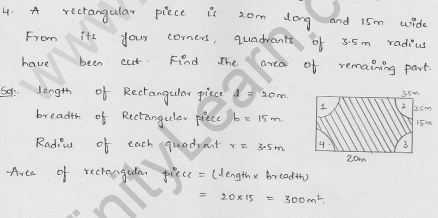 4. A rectangular piece is 20m long and 15m wide
From its four corners, quadrants of 3.5m radius
have been cut. Find the area of remaining part.
Sol:- length of Rectangular piece l = 20m.
breadth of Rectangular piece b = 15m.
Radius of each quadrant r = 3.5m
3.5m
1 2 3.5m
15m
4 3
20m
Area of rectangular piece = (length x breadth)
= 20x15 = 300m².
InfinityLearn.com